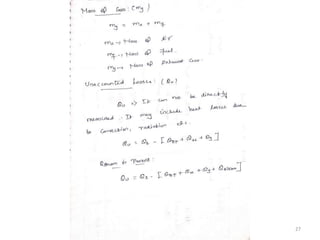 Mass of Gas : (mg)
mg = ma + mf
ma → Mass of air
mf → Mass of fuel
mg → Mass of Exhaust Gas.
Unaccounted Losses : (Qu)
Qu => It can not be directly
measured. It may include heat losses due
to convection, radiation etc.
Qu = Qs - [QBP + Qw + Qg]
Qu = Qs - [QBP + Qw + Qg + Qsteam]
27